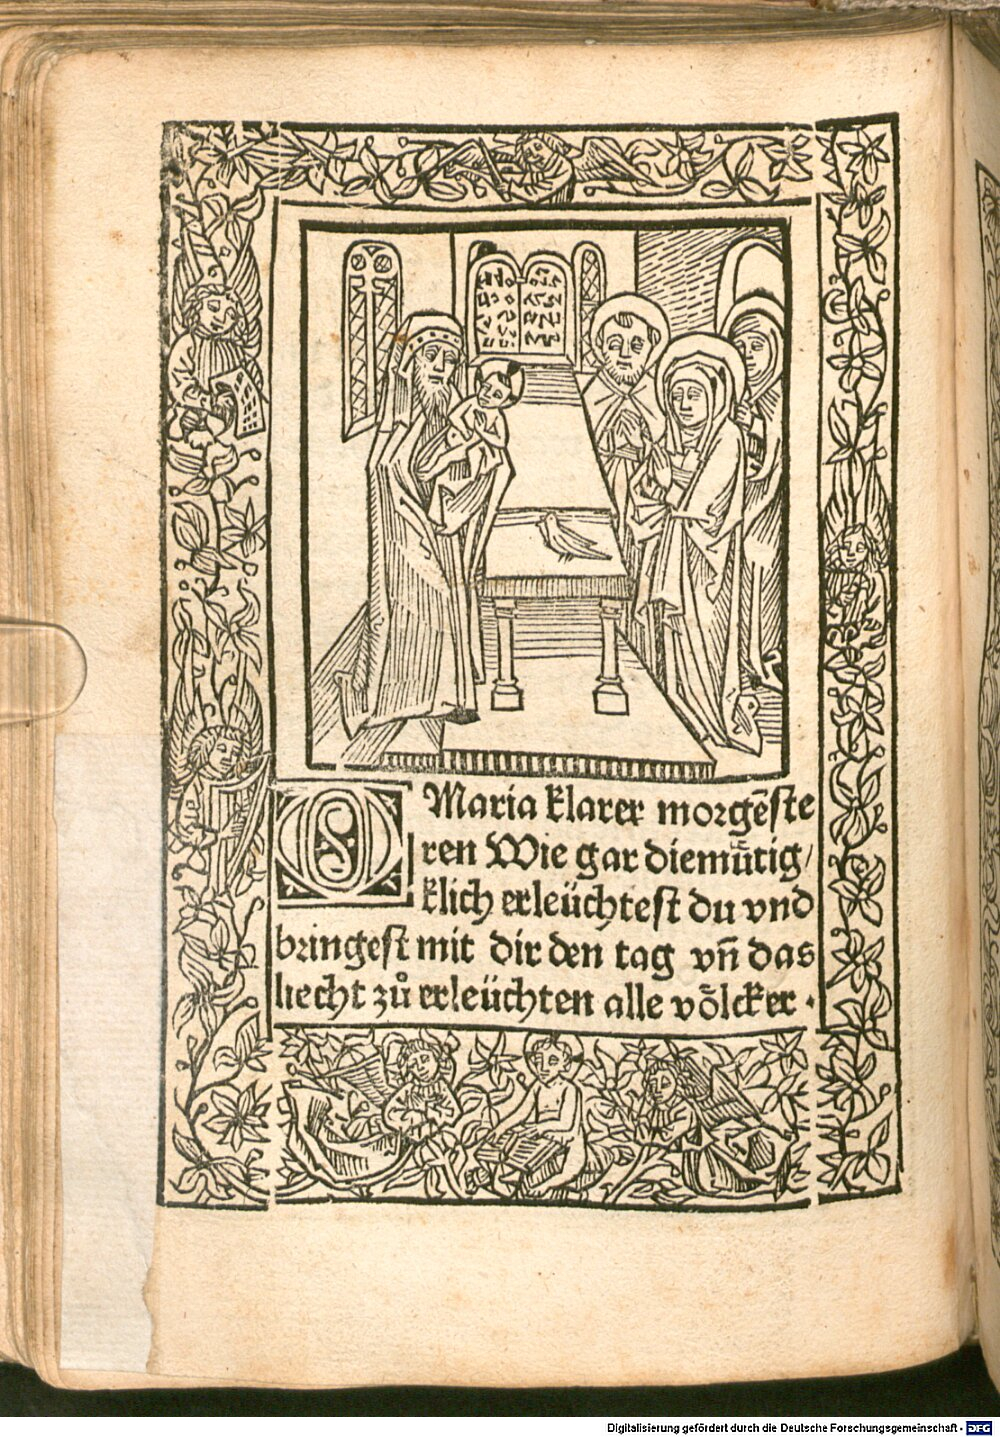 O Maria klarer morgēste
ren Wie gar diemūtig/
klich erleüchtest du vnd
bringest mit dir den tag vn̄ das
liecht zů erleüchten alle võlcker ·
Digitalisierung gefördert durch die Deutsche Forschungsgemeinschaft - DFG